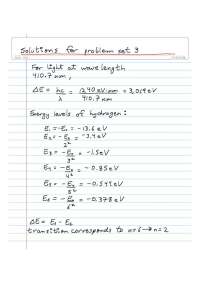 Solutions for problem set 3
For light at wavelength
410.7 nm,
ΔE = hc/λ = 1240 eV·nm/410.7 nm = 3,019 eV
Energy levels of hydrogen:
E₁ = -E₀ = -13.6 eV
E₂ = -E₀/2² = -3.4 eV
E₃ = -E₀/3² = -1.5 eV
E₄ = -E₀/4² = -0.85 eV
E₅ = -E₀/5² = -0.544 eV
E₆ = -E₀/6² = -0.378 eV
ΔE = E₂ - E₆
transition corresponds to n=6 → n=2